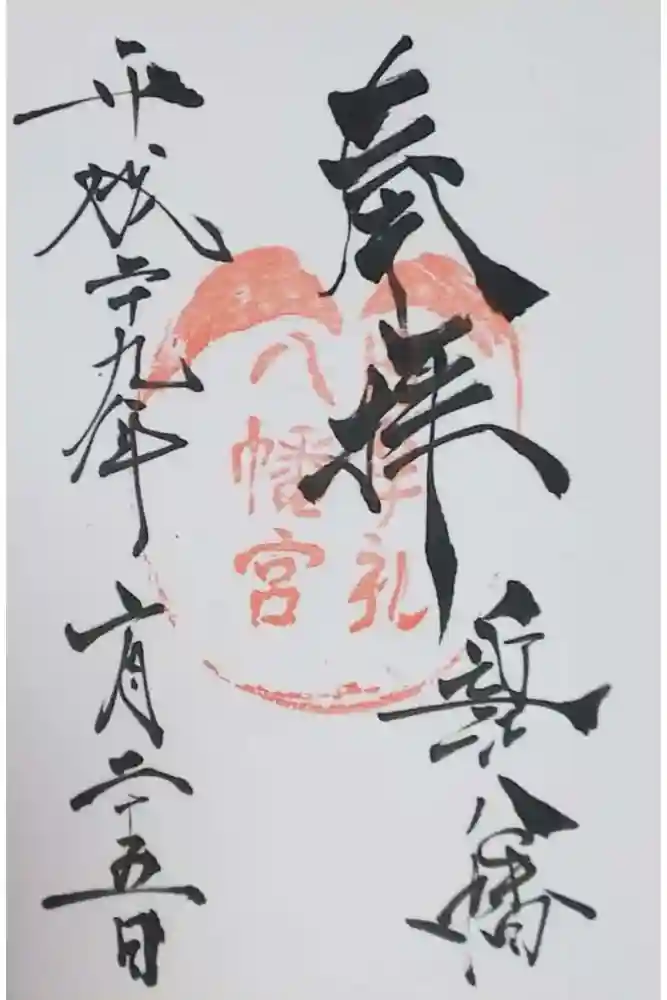 奉拝
八幡
日牟礼
八幡宮
平成二十九年 六月二十五日